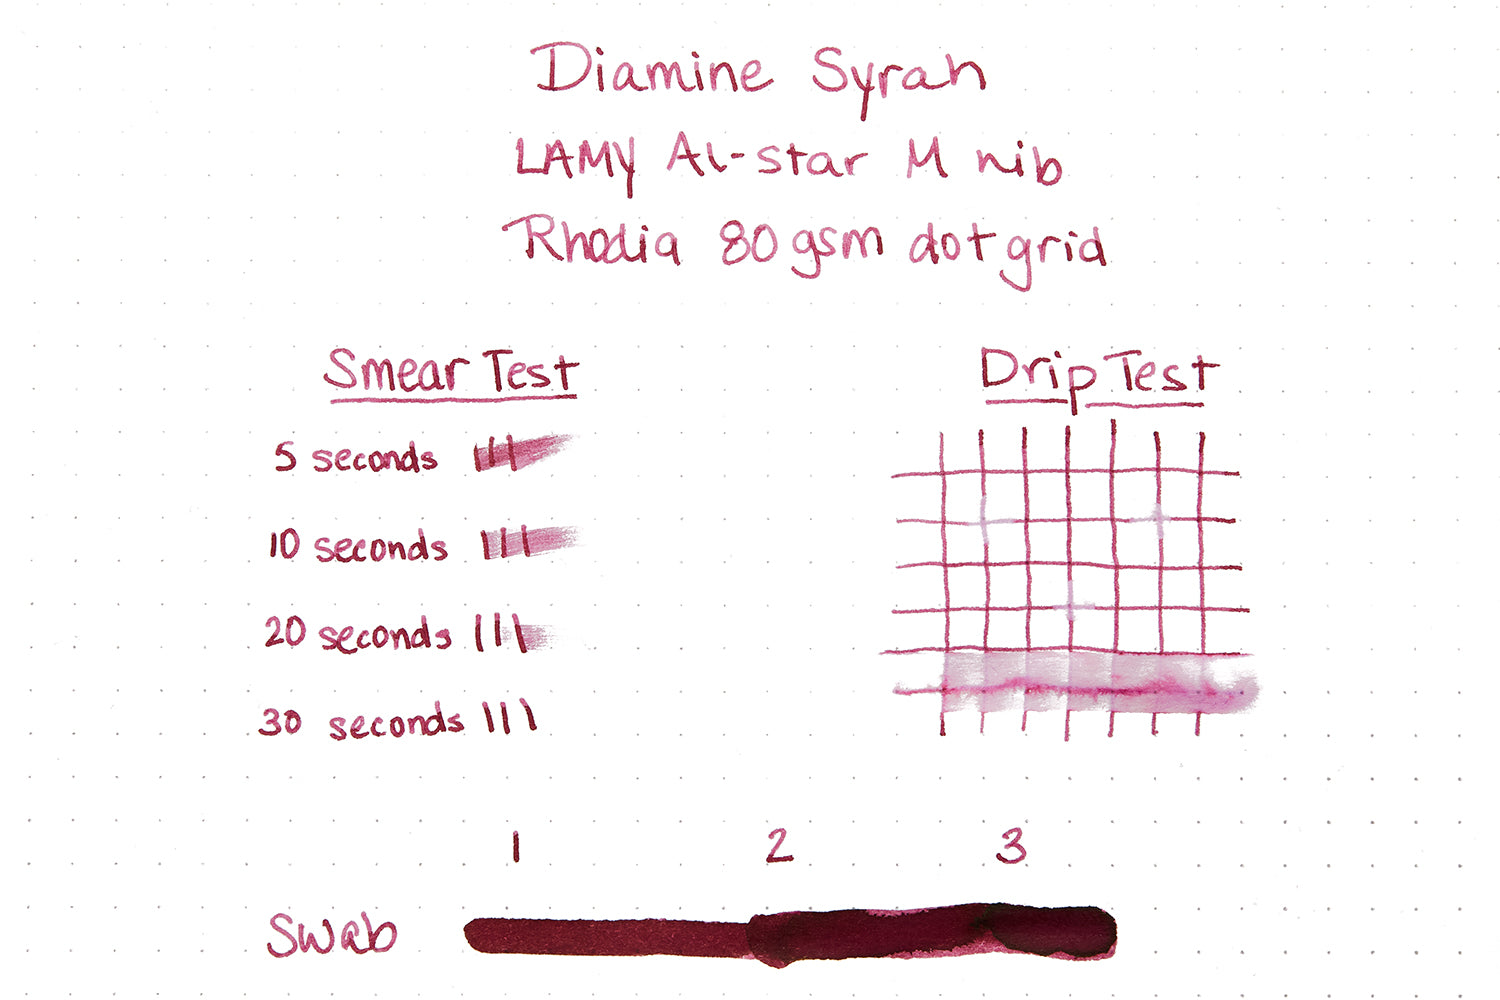 Diamine Syrah
LAMY Al-star M nib
Rhodia 80 gsm dot grid
Smear Test
5 seconds
10 seconds
20 seconds
30 seconds
Drip Test
1 2 3
Swab